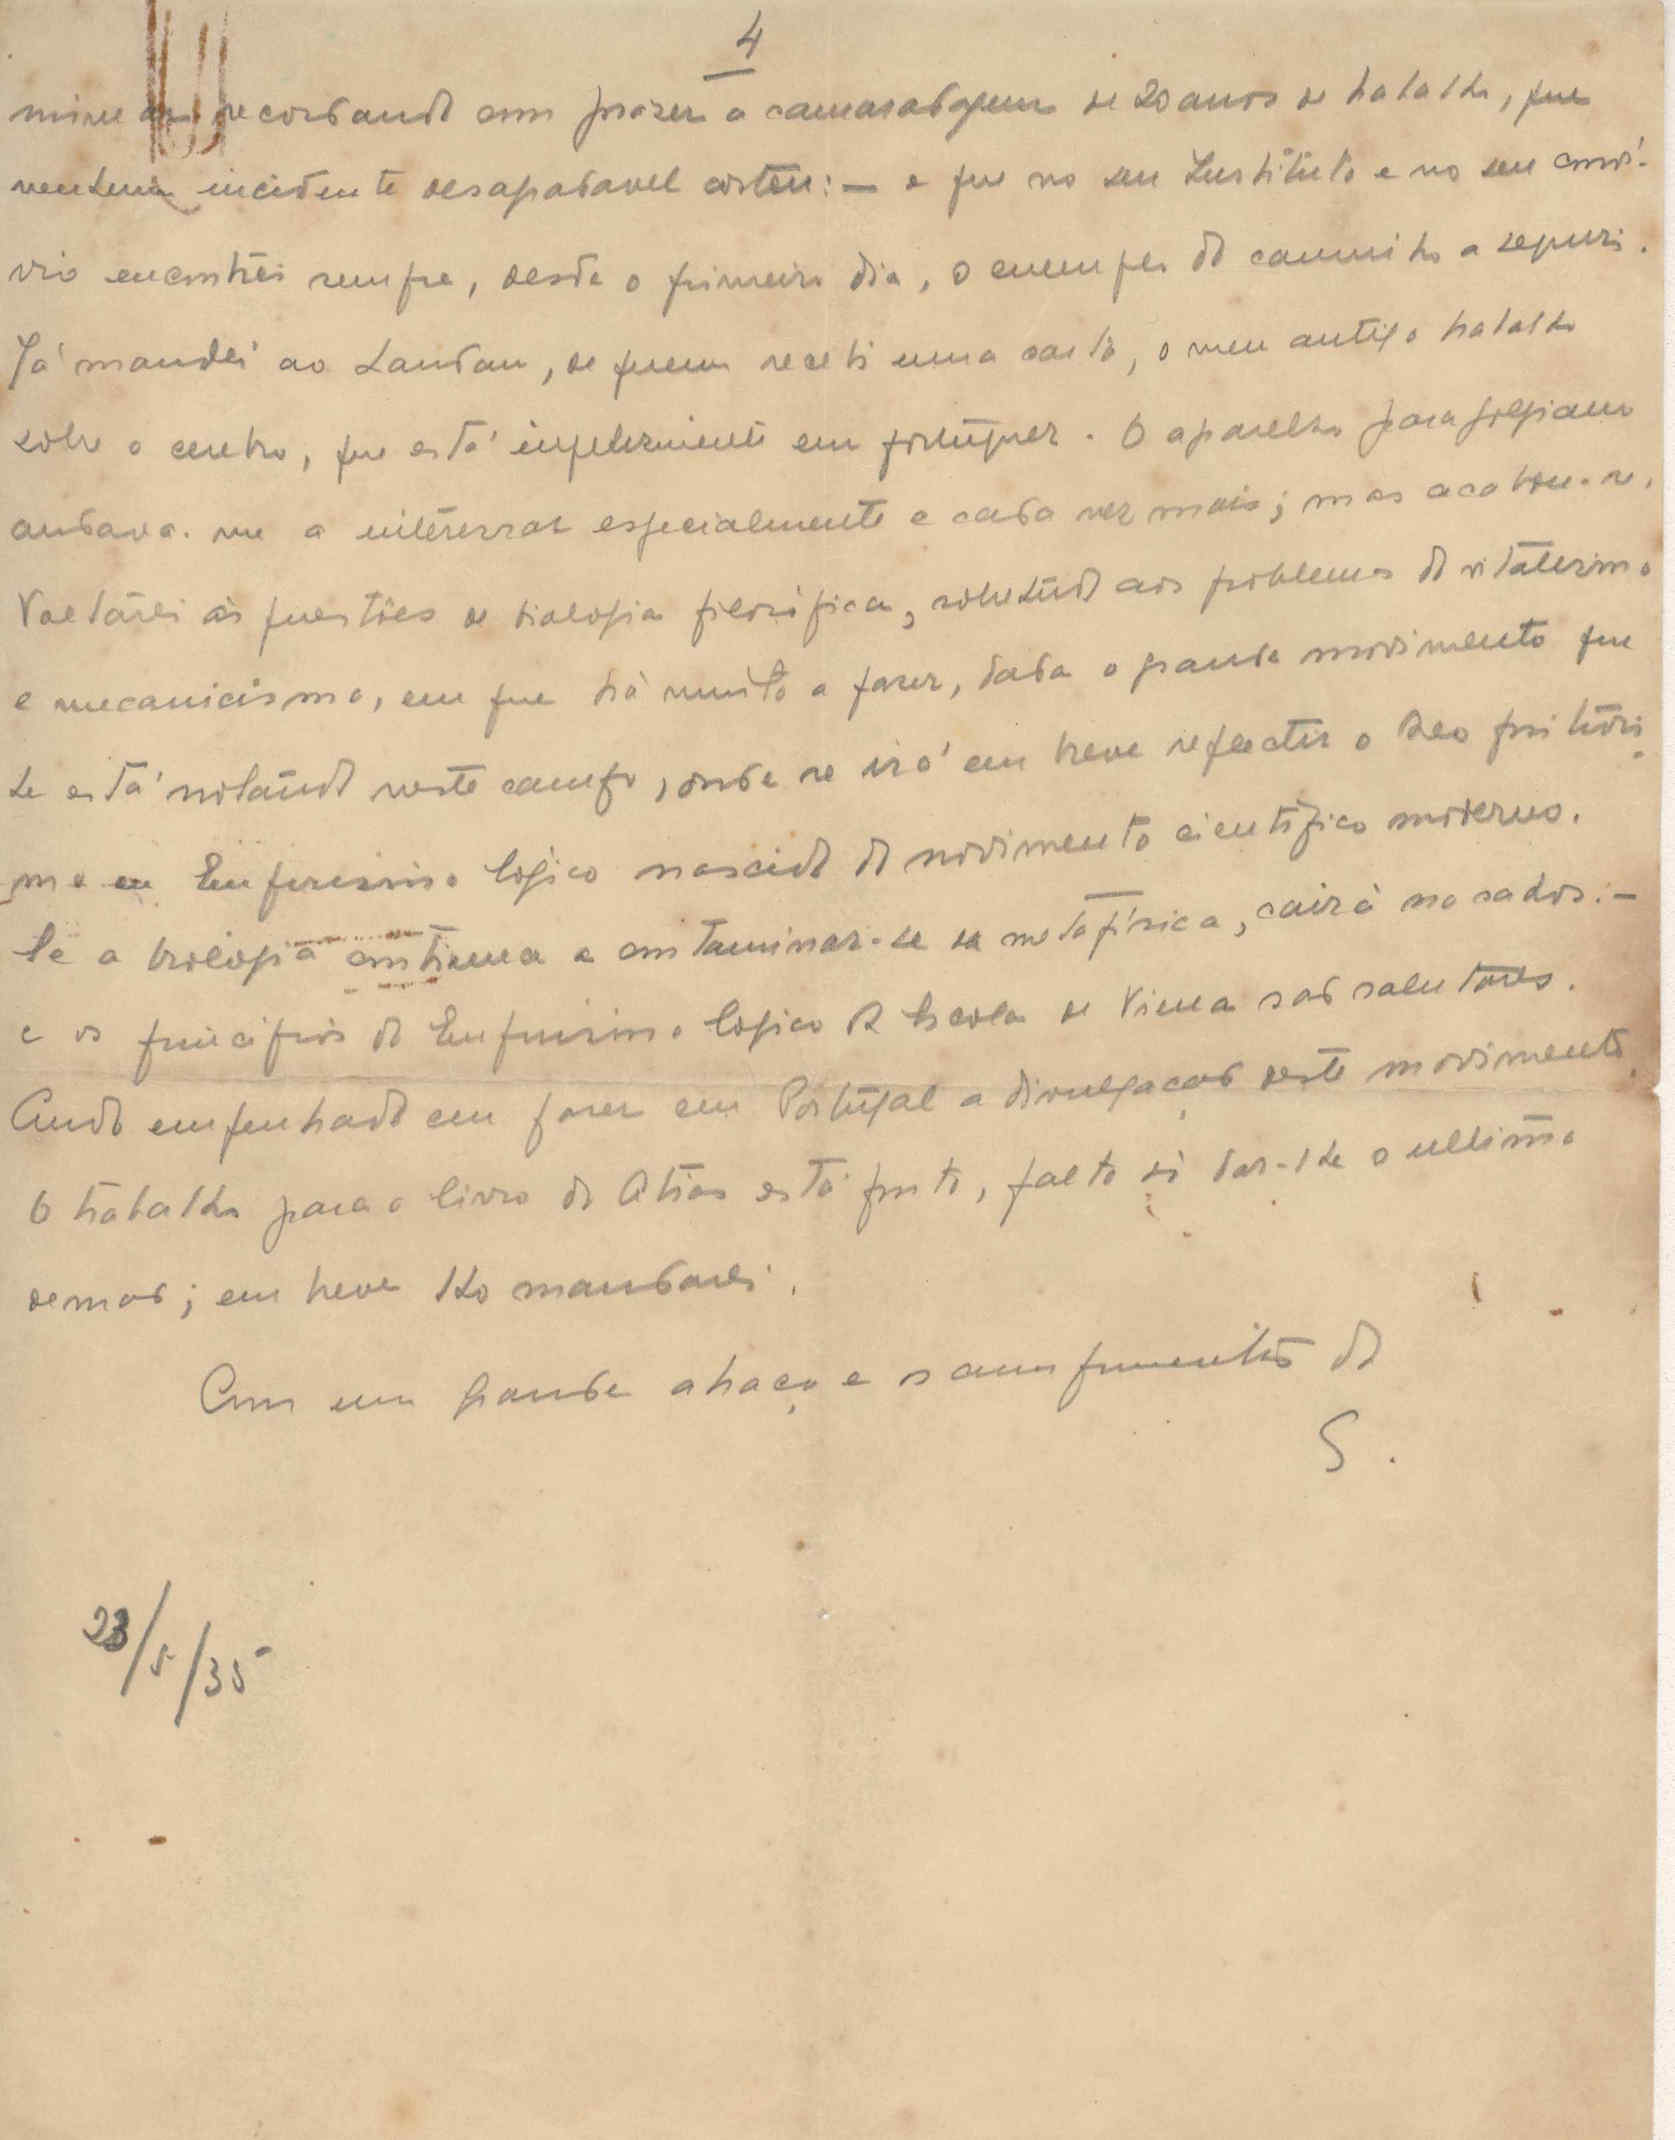 4
recordando com prazer a camaradagem de 20 anos de trabalho, que
nenhum incidente desagradavel cortou: — e que no seu Instituto e no seu conví-
vio encontrei sempre, desde o primeiro dia, o exemplo do caminho a seguir.
Já mandei ao Landau, de quem recebi uma carta, o meu antigo trabalho
sobre o centro, que está infelizmente em português. O aparelho para golgiano
andava-me a interessar especialmente e cada vez mais; mas acabou-se.
Voltarei ás questões de biologia filosófica, sobretudo aos problemas do vitalismo
e mecanicismo, em que há muito a fazer, dada o grande movimento que
se está notando neste campo, onde se irá em breve reflectir o Neo positivis-
mo ou Empirismo lógico nascido do movimento cientifico moderno.
Se a biologia continua a contaminar-se da metafísica, cairá no caos: —
e os principios do Empirismo logico da Escola de Viena são salutares.
Ando empenhado em fazer em Portugal a divulgação deste movimento.
O trabalho para o livro do Athias está pronto, falta só dar-lhe a ultima
demão; em breve lho mandarei.
Com um grande abraço e os cumprimentos do
S.
23/5/35